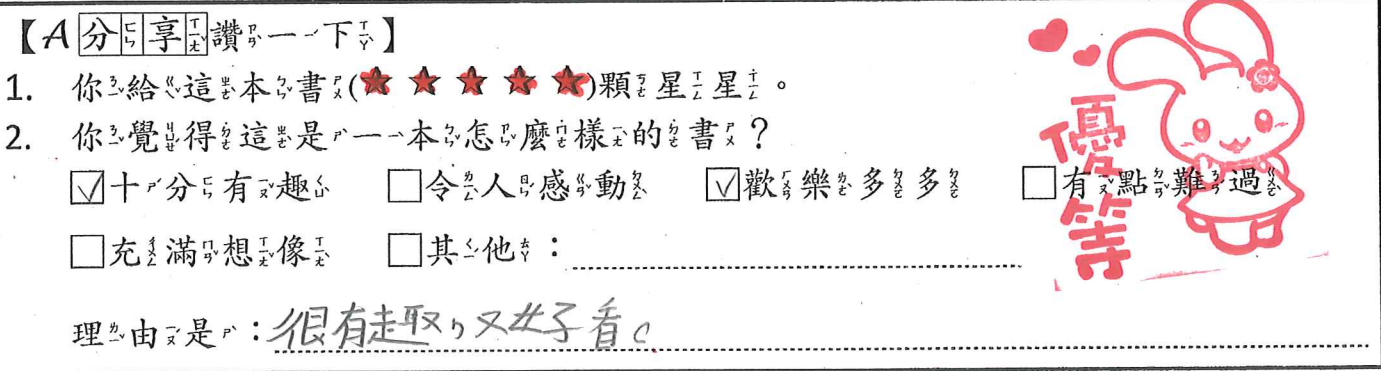 【A分享讚一下】
1. 你給這本書(★ ★ ★ ★ ★)顆星星。
2. 你覺得這是一本怎麼樣的書？
☑十分有趣 ☐令人感動 ☑歡樂多多 ☐有點難過
☐充滿想像 ☐其他：
理由是：很有趣，又好看。
優等